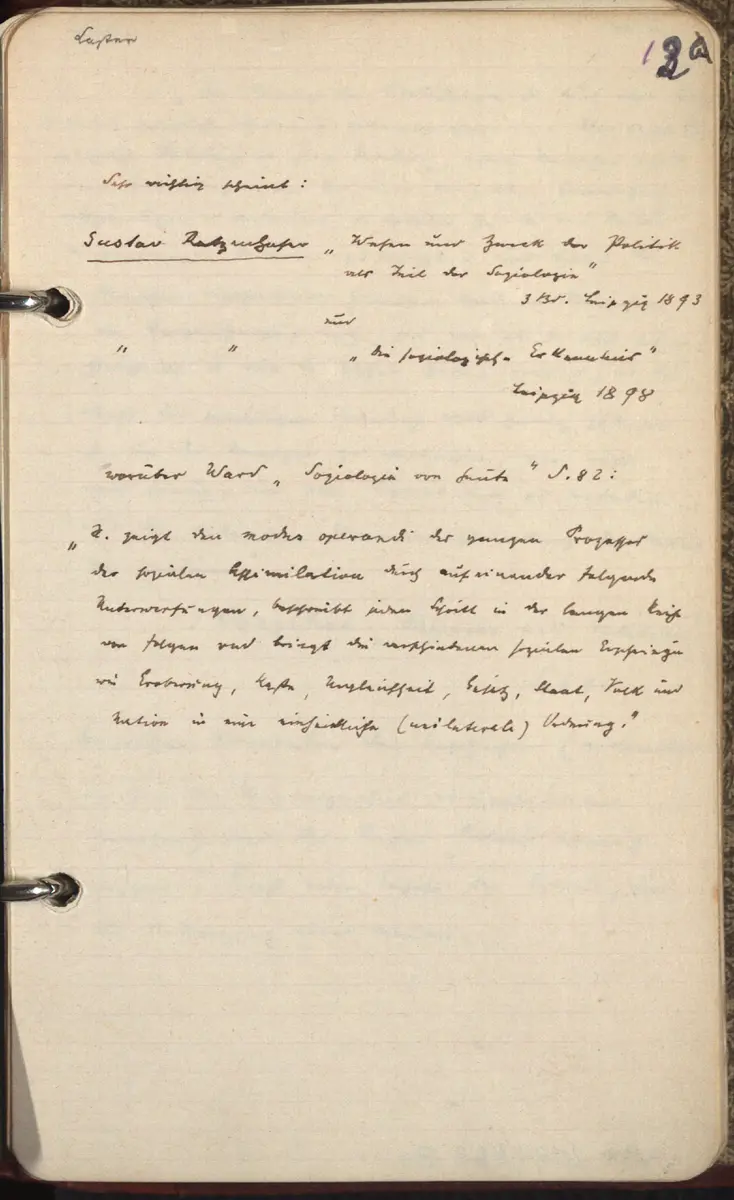 Kasten
13a
Sehr wichtig scheint:
Gustav Ratzenhofer „Wesen und Zweck der Politik
als Teil der Soziologie"
3 Bd. Leipzig 1893
und
" " „Die soziologische Erkenntnis"
Leipzig 1898
worüber Ward „Soziologie von heute" S. 82:
„R. zeigt den modus operandi des ganzen Prozesses
der sozialen Assimilation durch aufeinander folgende
Unterwerfungen, beschreibt jeden Schritt in der langen Reihe
von Folgen und bringt die verschiedenen sozialen
wie Eroberung, Kaste, Ungleichheit, Gesetz, Staat, Volk und
Nation in eine einheitliche (unilaterale) Ordnung."